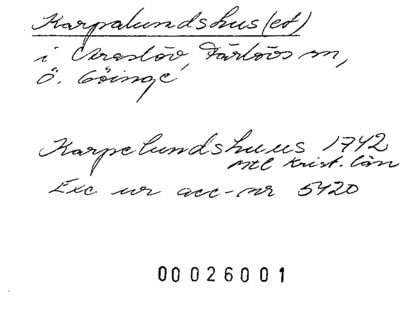 Karpalundshus (et)
i Araslöv, Färlövs sn,
Ö. Göinge
Karpelundshuus 1742
Mtl Krist. län
Exc ur acc-nr 5420
00026001